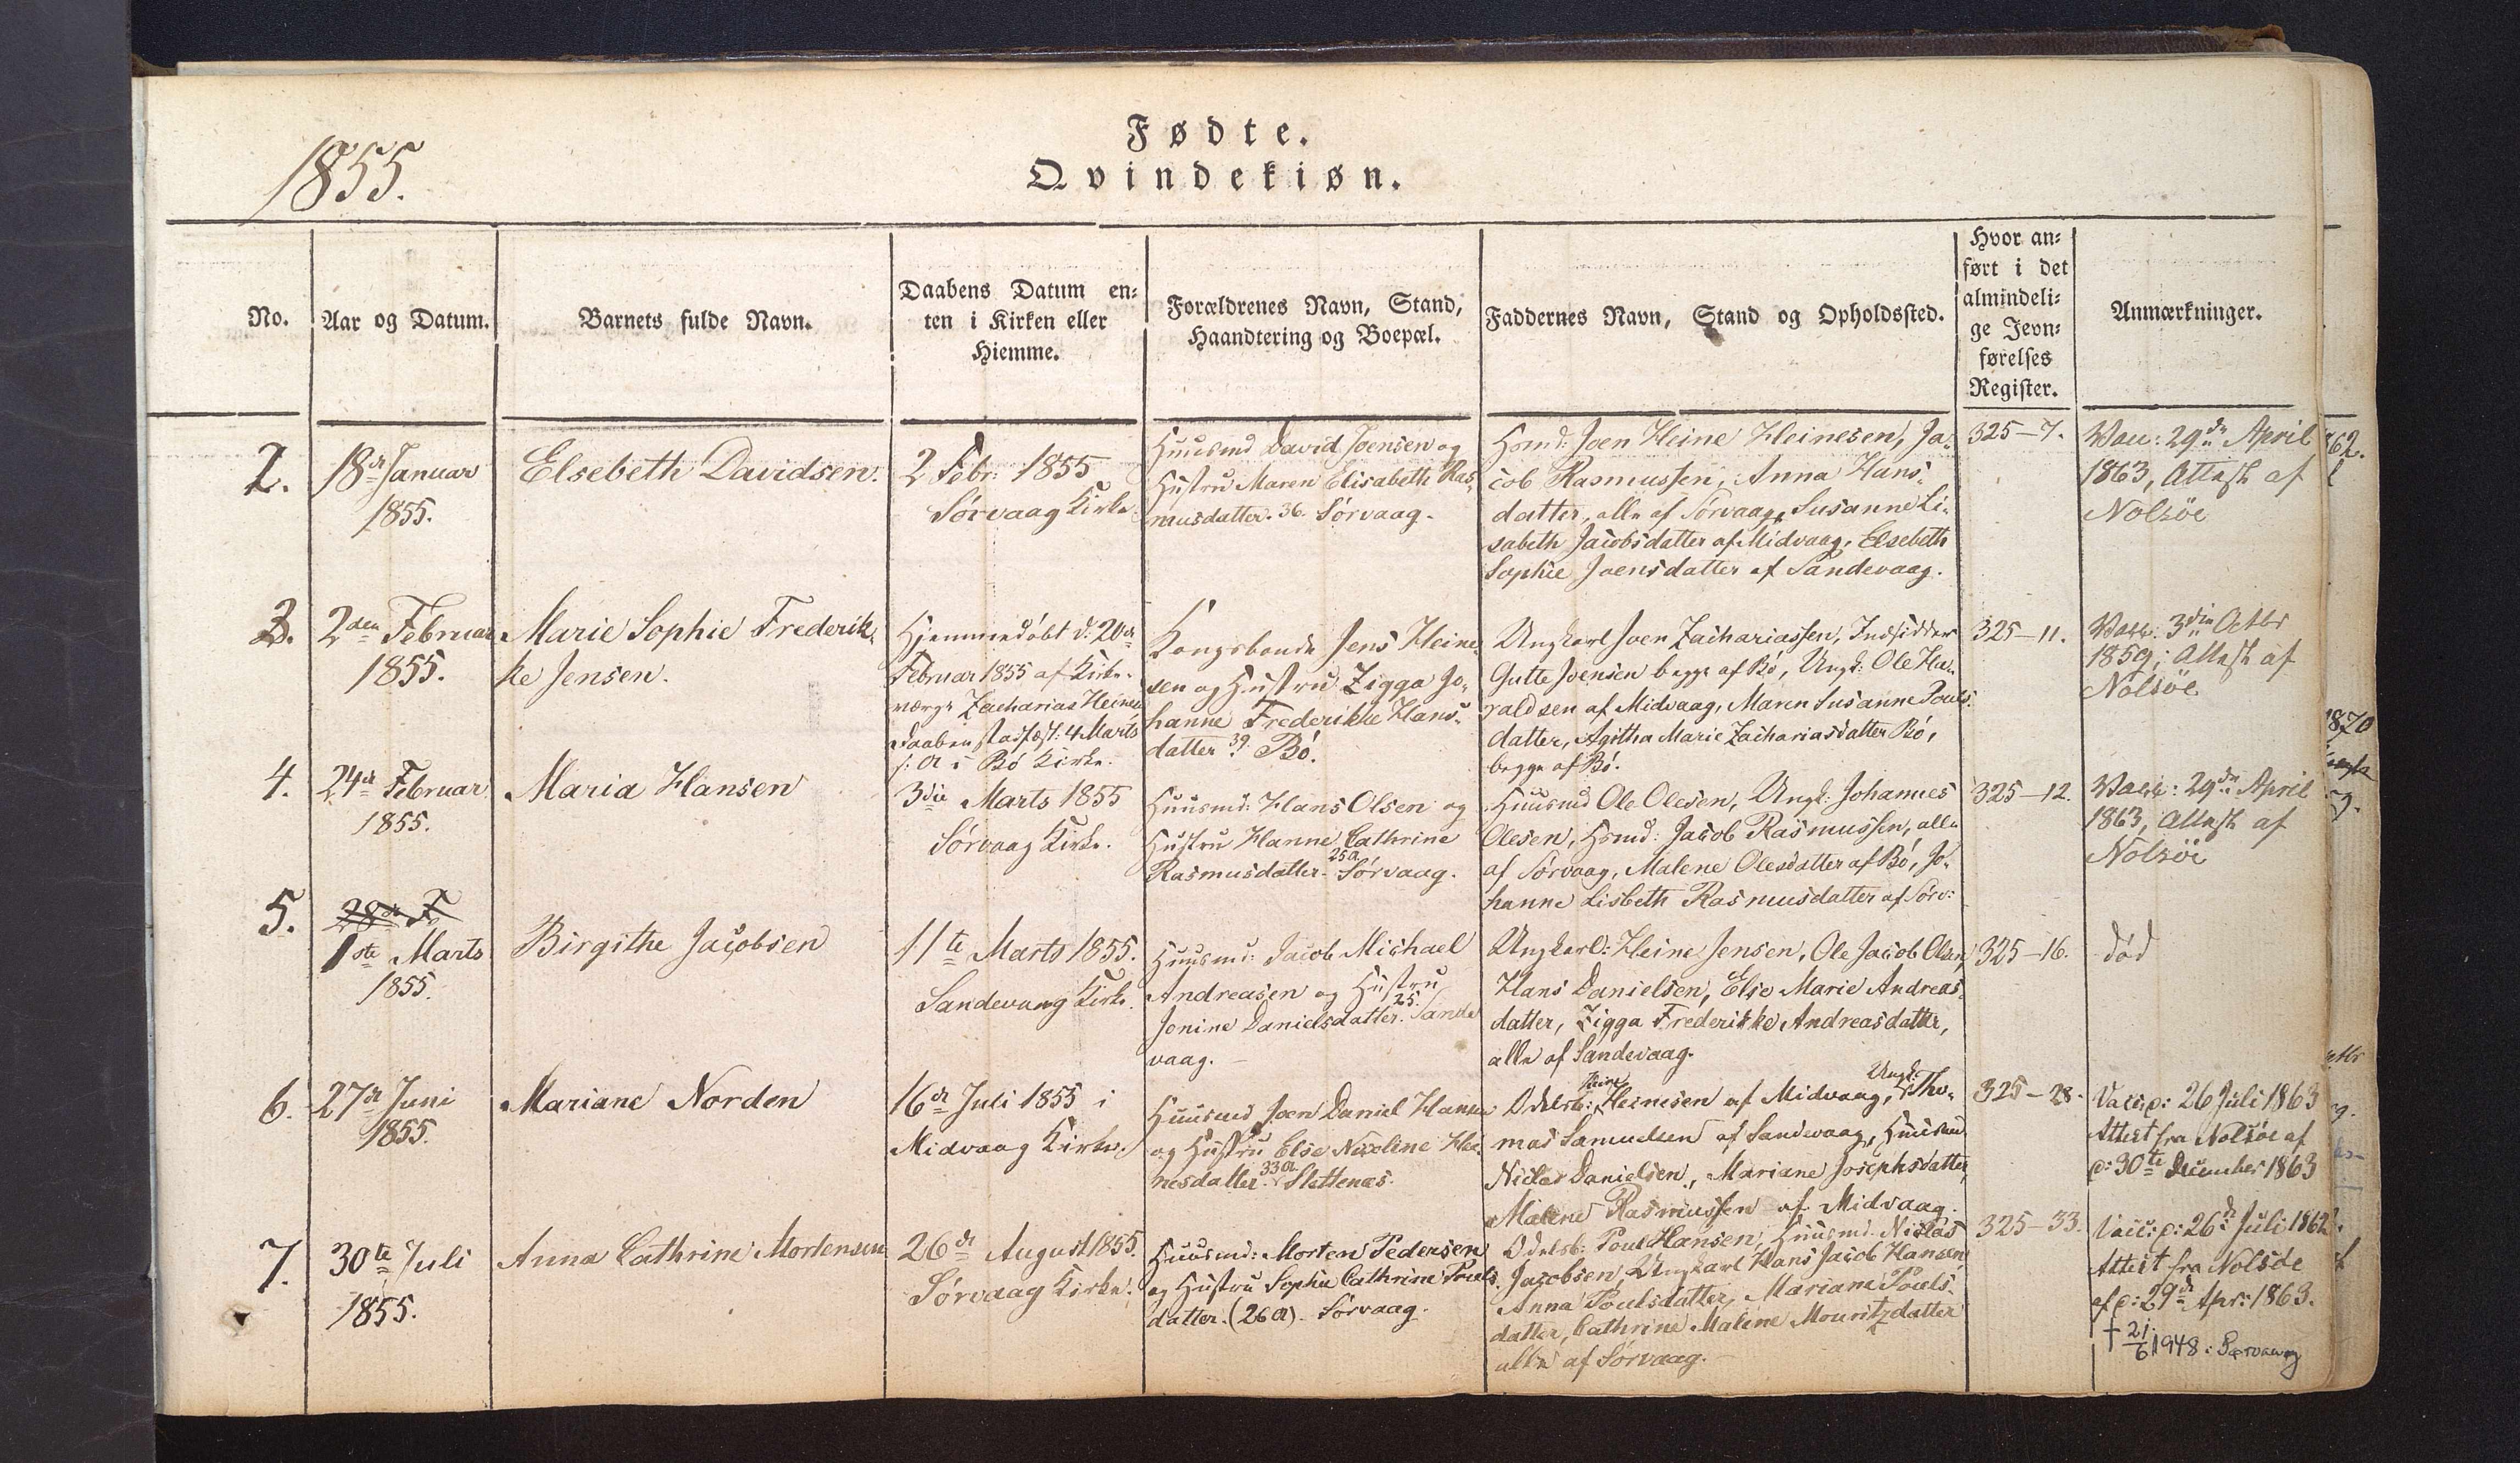 1855.
Fødte.
Qvindekiøn.
No.
Aar og Datum.
Barnets fulde Navn.
Daabens Datum en-
ten i Kirken eller
Hiemme.
Forældrenes Navn, Stand,
Haandtering og Boepæl.
Faddernes Navn, Stand og Opholdssted.
Hvor an-
ført i det
almindeli-
ge Jevn-
førelses
Register.
Anmærkninger.
2.
18de Januar
1855.
Elsebeth Davidsen.
2 Febr: 1855
Sørvaag Kirke.
Huusmd David Joensen og
Hustru Maren Elisabeth Ras-
musdatter. 36. Sørvaag.
Hsmd: Joen Heine Heinesen, Ja-
cob Rasmussen, Anna Hans-
datter, alle af Sørvaag, Susanne Li-
sabeth Jacobsdatter af Midvaag, Elsebeth
Sophie Joensdatter af Sandevaag.
325-7.
Vacc: 29de April
1863, Attest af
Nolsöe
3.
2den Februar
1855.
Marie Sophie Frederik-
ke Jensen.
Hjemmedøbt d: 20de
Februar 1855 af Kirke-
værge Zacharias Heinesen
Daaben stadfæst: 4 Marts
s: A i Bø Kirke.
Kongsbonde Jens Heine-
sen og Hustru Zigga Jo-
hanne Frederikke Hans-
datter 39. Bø.
Ungkarl Joen Zachariassen, Indsidder
Gutte Joensen begge af Bø, Ungk: Ole Ha-
raldsen af Midvaag, Maren Susanne Pouls-
datter, Agitha Marie Zachariasdatter Bø,
begge af Bø.
325-11.
Vacc: 3die Octbr
1859; Attest af
Nolsöe
4.
24de Februar
1855.
Maria Hansen
3die Marts 1855
Sørvaag Kirke.
Huusmd: Hans Olsen og
Hustru Hanne Cathrine
Rasmusdatter. 25 A. Sørvaag.
Huusmd Ole Olesen, Ungk: Johannes
Olesen, Hsmd: Jacob Rasmussen, alle
af Sørvaag, Malene Olesdatter af Bø, Jo-
hanne Lisbeth Rasmusdatter af Sørv:
325-12.
Vacc: 29de April
1863, Attest af
Nolsöe
5.
28de F
1ste Marts
1855.
Birgithe Jacobsen
11te Marts 1855.
Sandevaag Kirke.
Huusmd: Jacob Michael
Andreasen og Hustru
Jonine Danielsdatter. 25. Sande
vaag.
Ungkarl: Heine Jensen, Ole Jacob Olsen,
Hans Danielsen, Else Marie Andreas-
datter, Zigga Frederikke Andreasdatter,
alle af Sandevaag.
325-16.
død
6.
27de Juni
1855.
Mariane Norden
16de Juli 1855 i
Midvaag Kirke.
Huusmd Joen Daniel Hansen
og Hustru Else Nicoline Hei-
nesdatter. 33 A. Slettenæs.
Odelsb: Heine Heinesen af Midvaag, Ungk: Tho-
mas Samuelsen af Sandevaag, Huusmd
Niclas Danielsen, Mariane Josephsdatter,
Malene Rasmussen af Midvaag.
325-28.
Vacc: d: 26 Juli 1863
Attest fra Nolsöe af
d: 30te December 1863
7.
30te Juli
1855.
Anna Cathrine Mortensen
26de August 1855.
Sørvaag Kirke.
Huusmd: Morten Pedersen
og Hustru Sophie Cathrine Pouls-
datter. (26 A). Sørvaag.
Odelsb: Poul Hansen, Huusmd. Niclas
Jacobsen, Ungkarl Hans Jacob Hansen,
Anna Poulsdatter, Mariane Pouls-
datter, Cathrine Malene Mouritzdatter
alle af Sørvaag.
325-33.
Vacc: d: 26de Juli 1862.
Attest fra Nolsöe
af d: 29de Apr: 1863.
† 21/6 1948 i Sørvaag
62.
1870